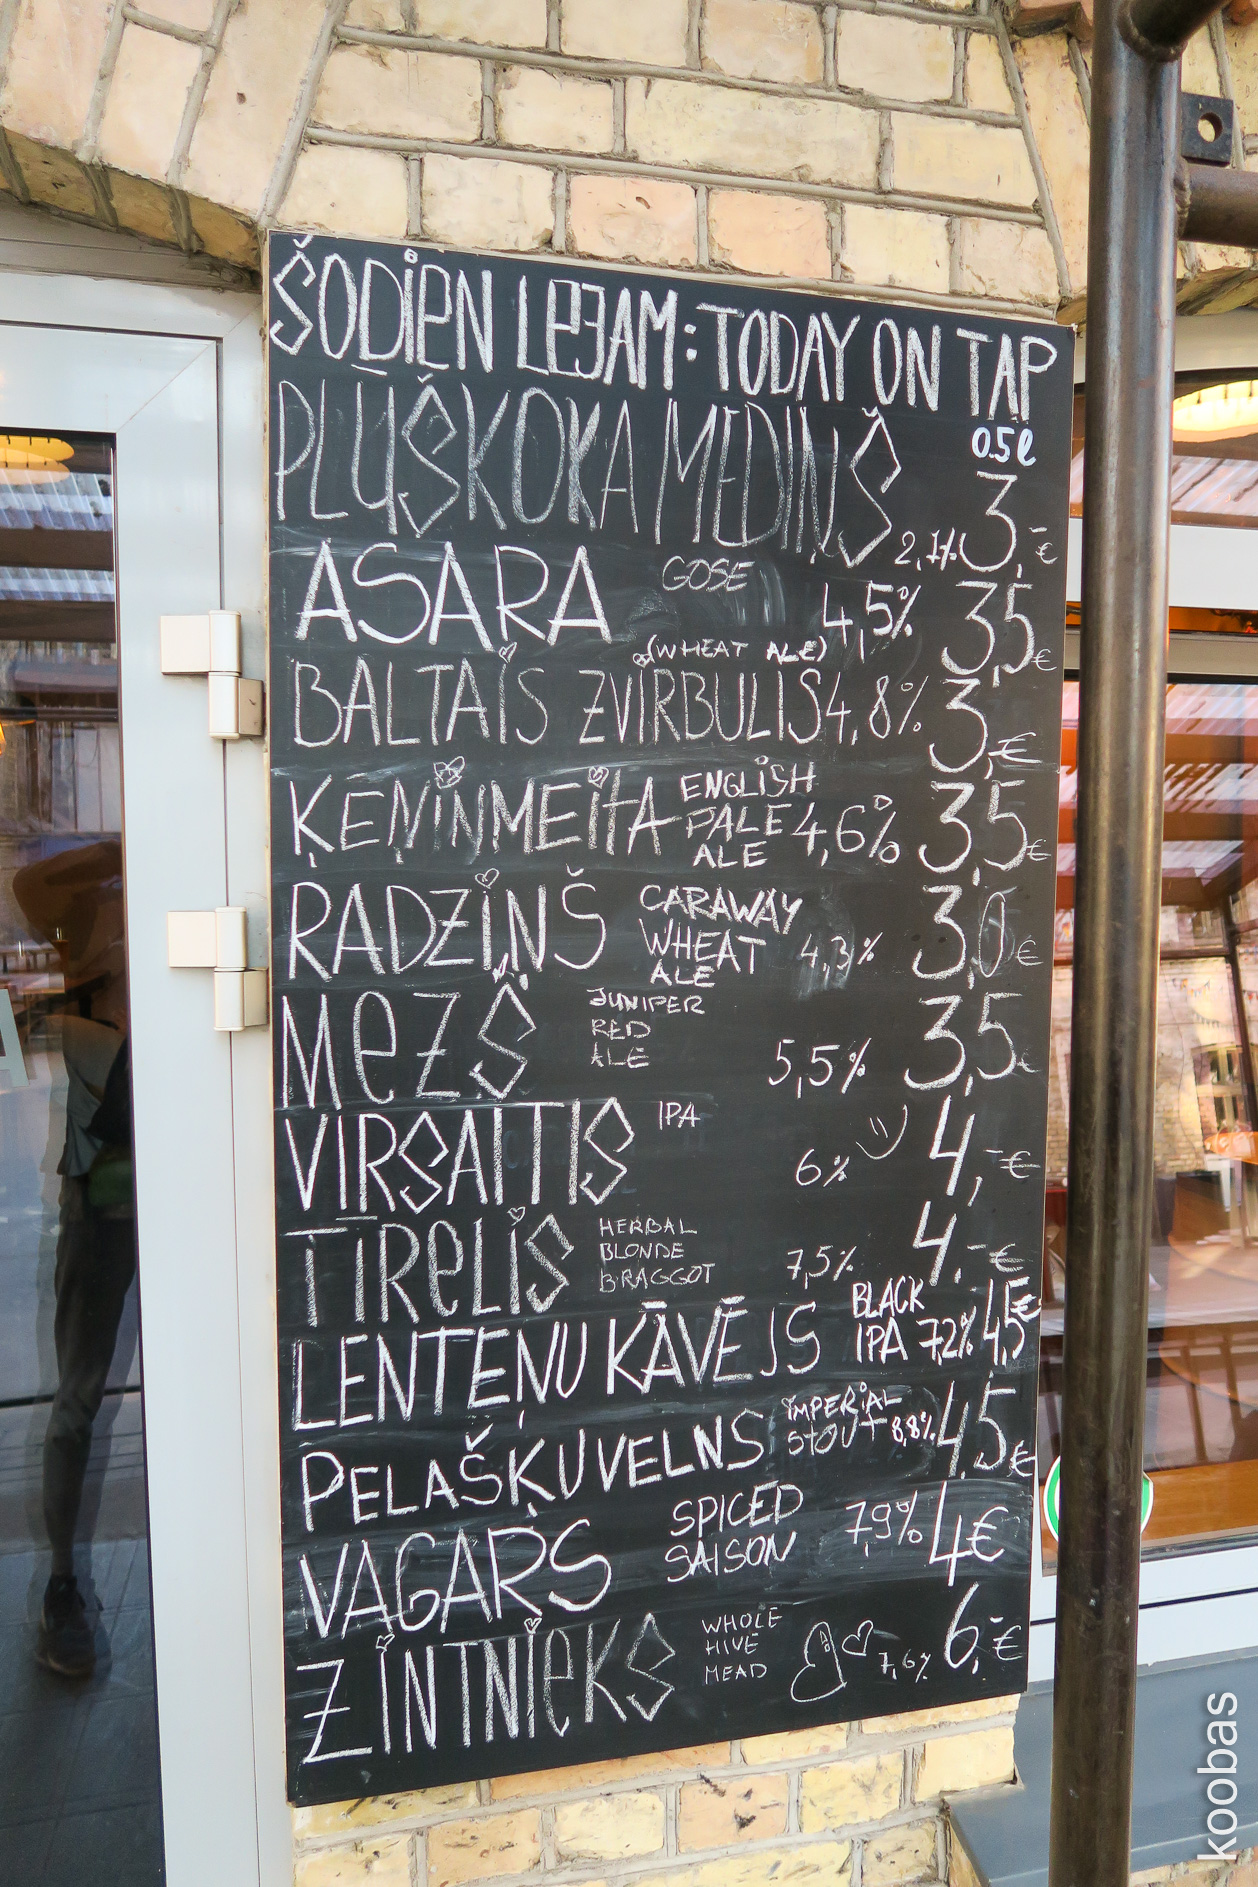 ŠODIEN LEJAM: TODAY ON TAP
0.5l
PLŪŠKOKA MEDIŅŠ 2,1% 3,-€
ASARA GOSE 4,5% 3,5€
BALTAIS ZVIRBULIS (WHEAT ALE) 4,8% 3,-€
ĶĒNIŅMEITA ENGLISH PALE ALE 4,6% 3,5€
RADZIŅŠ CARAWAY WHEAT ALE 4,3% 3,0€
MEŽS JUNIPER RED ALE 5,5% 3,5€
VIRSAITIS IPA 6% 4,-€
TĪRELIS HERBAL BLONDE BRAGGOT 7,5% 4,-€
LENTEŅU KĀVĒJS BLACK IPA 7,2% 4,5€
PELAŠĶU VELNS IMPERIAL STOUT 8,8% 4,5€
VAGARS SPICED SAISON 7,9% 4€
ZINTNIEKS WHOLE HIVE MEAD 7,6% 6,-€
koobas